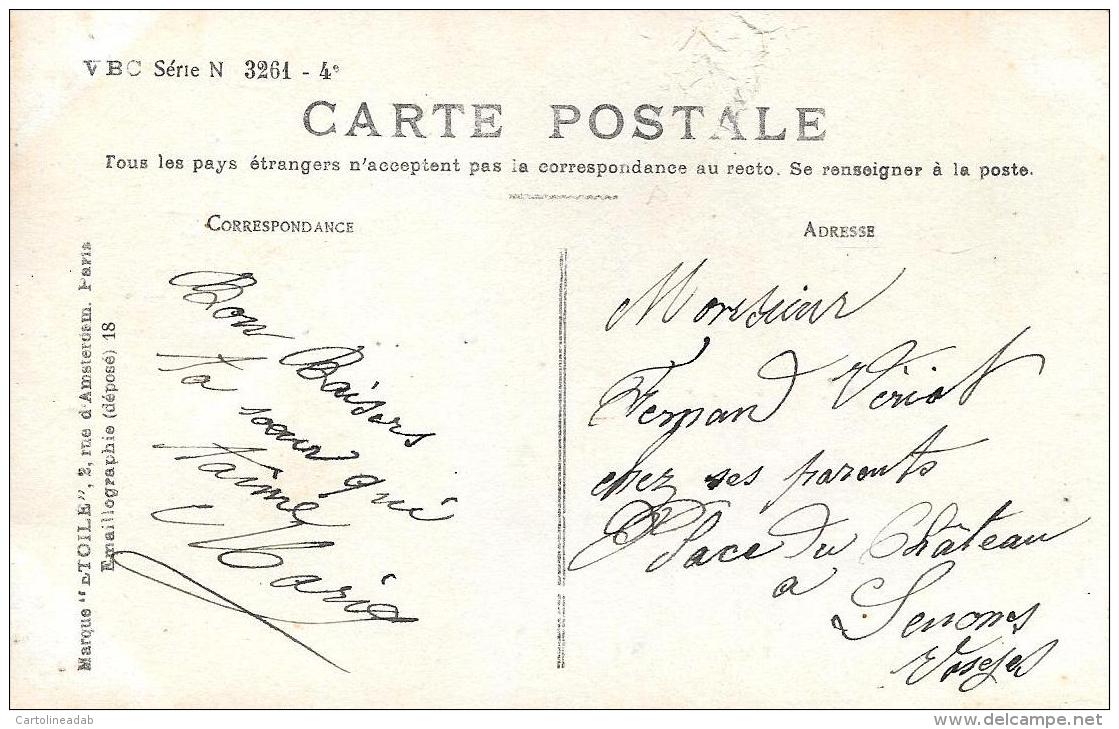 VBC Série N 3261 - 4e
CARTE POSTALE
Tous les pays étrangers n'acceptent pas la correspondance au recto. Se renseigner à la poste.
CORRESPONDANCE
Bon Baisers
ta sœur qui
t'aime
Maria
ADRESSE
Monsieur
Fernand Vériot
chez ses parents
Place du Château
a
Senones
Vosges
Marque "ETOILE", 2, rue d'Amsterdam. Paris
Emaillographie (déposé) 18
Cartolineadab
www.delcampe.net